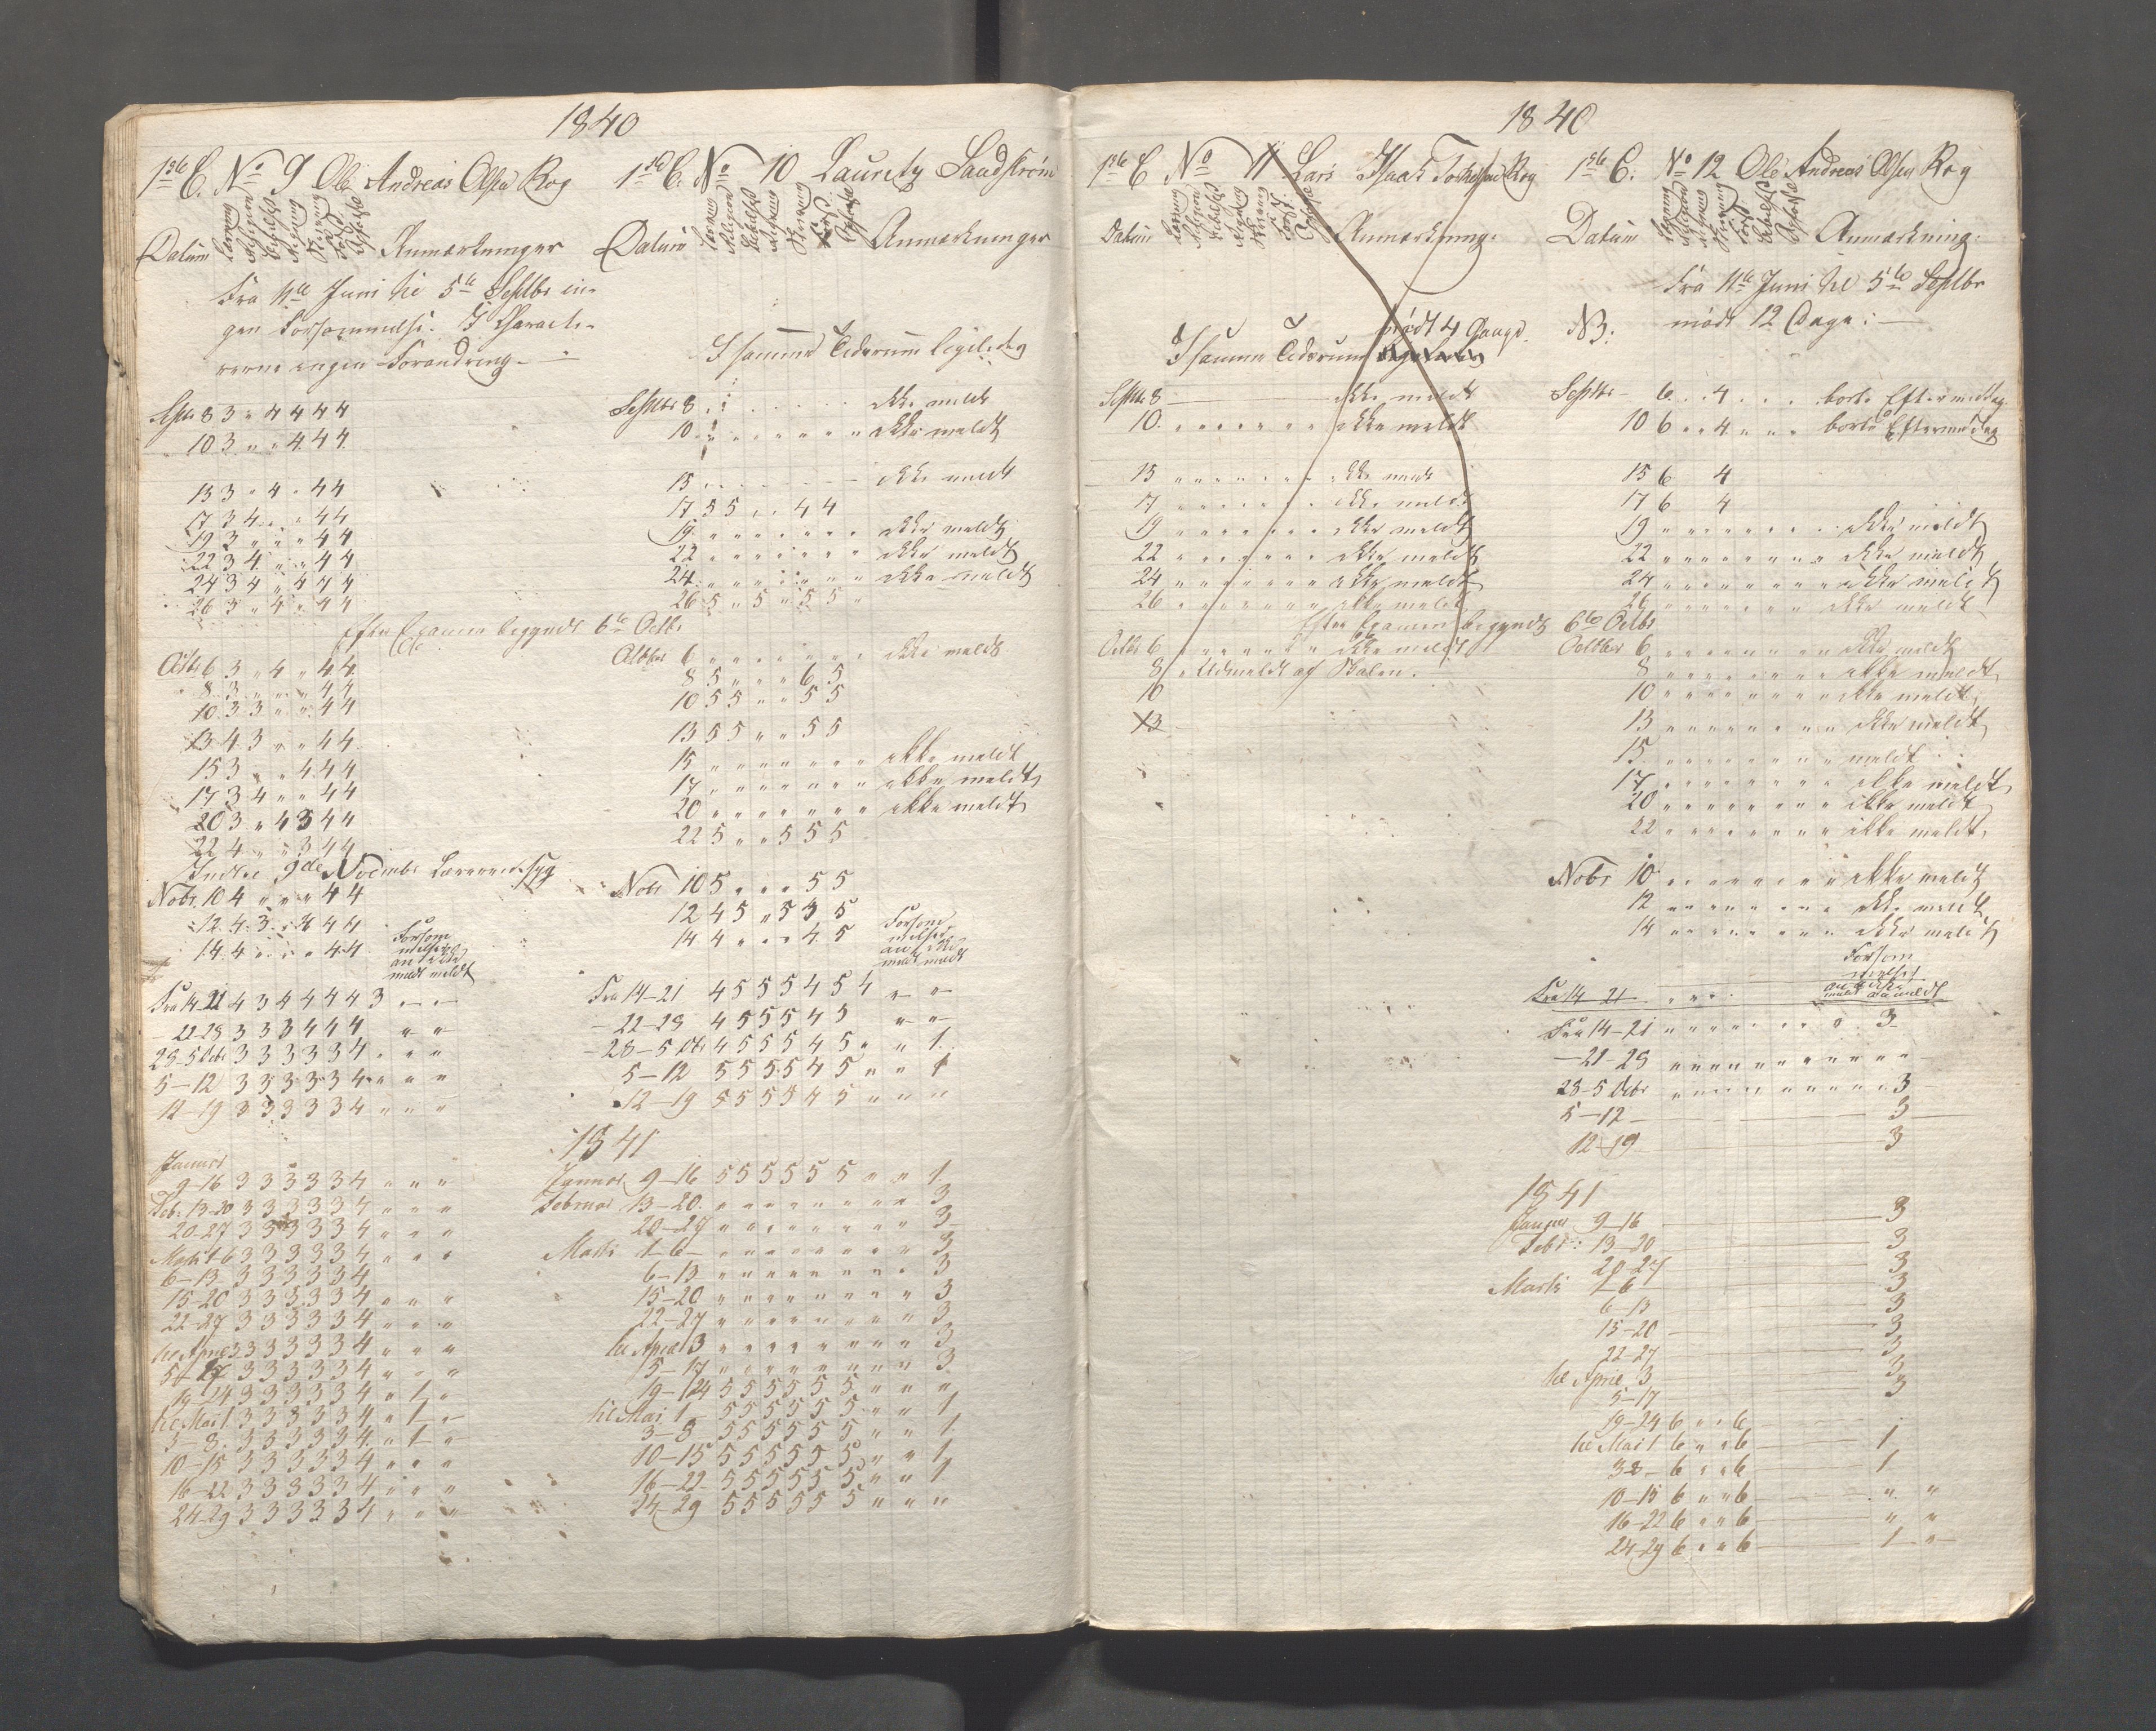 1840
1ste C. No 9 Ole Andreas Olsen Rog
Datum Anmærkninger
Fra 11te Juni til 5te Septbr in-
gen Forsømmelse. I Charack-
rerne ingen Forandring.
Septr 8 3 " 4 4 4 4
10 3 " " 4 4 4
15 3 " 4 " 4 4
17 3 4 " " 4 4
19 3 " " " 4 4
22 3 4 " " 4 4
24 3 4 " 4 4 4
26 3 " 4 " 4 4
Efter Examen begyndt 6te Octbr
Octbr 6 3 " 4 " 4 4
8 3 " " " 4 4
10 3 3 " " 4 4
13 4 3 " " 4 4
15 3 " " 4 4 4
17 3 4 " " 4 4
20 3 " 4 3 4 4
22 4 " " 3 4 4
Indtil 9de Novembr Læreren syg
Nobr. 10 4 " " " 4 4
12 4 3 " 4 4 4
14 4 " " " 4 4
Forsøm
melser
an ikke
meldt meldt
Fra 14-21 4 3 4 4 4 4 3 " "
22-28 3 3 3 4 4 4 " "
28-5 Debr 3 3 3 3 3 4 " " "
5-12 3 3 3 3 3 4 " " "
12-19 3 3 3 3 3 4 " " "
Januar
9-16 3 3 3 3 3 4 " " "
Febr. 13-20 3 3 3 3 3 4 " " "
20-27 3 3 3 3 3 4 " " "
Marts 1-6 3 3 3 3 3 4 " " "
6-13 3 3 3 3 3 4
15-20 3 3 3 3 3 4 " " "
22-27 3 3 3 3 3 4 " " "
til April 3 3 3 3 3 3 4 " " "
5-17 3 3 3 3 3 4 " " "
19-24 3 3 3 3 3 4 " 1 "
til Mai 1 3 3 3 3 3 4 " 1 "
3-8 3 3 3 3 3 4 " 1 "
10-15 3 3 3 3 3 4 " " "
16-22 3 3 3 3 3 4 " " "
24-29 3 3 3 3 3 4 " " "
1ste C. No 10 Lauretz Sandstrøm
Datum Anmærkninger
I samme Tiderum ligeledes
Septbr 8 ikke meldt
10 " " " " " " " ikke meldt
15 ikke meldt
17 5 5 " " 4 4
19 " " " " " " " ikke meldt
22 " " " " " " " ikke meldt
24 " " " " " " " ikke meldt
26 5 " 5 " 5 5 "
Octbr 6 " " " " " " " ikke meldt
8 5 " " " 6 5
10 5 5 " " 5 5
13 5 5 " " 5 5
15 " " " " " " " ikke meldt
17 " " " " " " " ikke meldt
20 " " " " " " " ikke meldt
22 5 " " 5 5 5
Nobr 10 5 " " " 5 5
12 4 5 " 5 5 5
14 4 " " " 4 5
Forsøm
melser
an ikke
meldt meldt
Fra 14-21 4 5 5 5 4 5 4 " "
22-28 4 5 5 5 4 5 " "
28-5 Dbr 4 5 5 5 4 5 " " 1
5-12 5 5 5 5 4 5 " " 1
12-19 5 5 5 5 4 5 " " "
1841
Januar 9-16 5 5 5 5 5 5 " " 1
Februar 13-20 " " " " " " " " 3
20-27 " " " " " " " " 3
Marts 1-6 " " " " " " " " 3
6-13 " " " " " " " " 3
15-20 " " " " " " " " 3
22-27 " " " " " " " " 3
til April 3 " " " " " " " " 3
15-17 " " " " " " " " 3
19-24 5 5 5 5 5 5 " " "
til Mai 1 5 5 5 5 5 5 " " 1
3-8 5 5 5 5 5 5 " " 1
10-15 5 5 5 5 5 5 " " 1
16-22 5 5 5 5 5 5 " " 1
24-29 5 5 5 5 5 5 " " "
1840
1ste C No 11 Lars Isaak Torkelsen Rog
Datum Anmærkning:
mødt 4 Gange
I samme Tiderum
Septbr 8 ikke meldt
10 " " " " " " " ikke meldt
15 " " " " " " " ikke meldt
17 " " " " " " " ikke meldt
19 " " " " " " " ikke meldt
22 " " " " " " " ikke meldt
24 " " " " " " " ikke meldt
26 " " " " " " " ikke meldt
Efter Examen begyndt 6te Octbr
Octbr 6 " " " " " " " ikke meldt
8 " Udmeldt af Skolen.
10
13
1ste C. No 12 Ole Andreas Olsen Rog
Datum Anmærkning:
Fra 11te Juni til 5te Septbr
NB: mødt 12 Dage:
Septbr 6 " " 4 " " " borte Eftermiddag
10 6 " " 4 " " " borte Eftermiddag
15 6 4
17 6 4
19 " " " " " " " ikke meldt
22 " " " " " " " ikke meldt
24 " " " " " " " ikke meldt
26 " " " " " " " ikke meldt
Octbr 6 " " " " " " " ikke meldt
8 " " " " " " " ikke meldt
10 " " " " " " " ikke meldt
13 " " " " " " " ikke meldt
15 " " " " " " " meldt
17 " " " " " " " ikke meldt
20 " " " " " " " ikke meldt
22 " " " " " " " ikke meldt
Nobr 10 " " " " " " " ikke meldt
12 " " " " " " " ikke meldt
14 " " " " " " " ikke meldt
Forsøm
melser
an ikke
meldt anmeldt
Fra 14 21 " " "
Fra 14-21 " " " " " " " " 3
21-28 " " " " " " " " " "
28-5 Debr " " " " " " " " 3
5-12 3
12-19 3
1841
Januar 9-16 3
Febr: 13-20 3
20-27 3
Marts 1-6 3
6-13 3
15-20 3
22-27 3
til April 3 3
5-17 3
19-24 6 " " 6
til Mai 1 6 " " 6 1
3-8 6 " " 6 1
10-15 6 " " 6 " "
16-22 6 " " 6 " "
24-29 6 " " 6 1 "